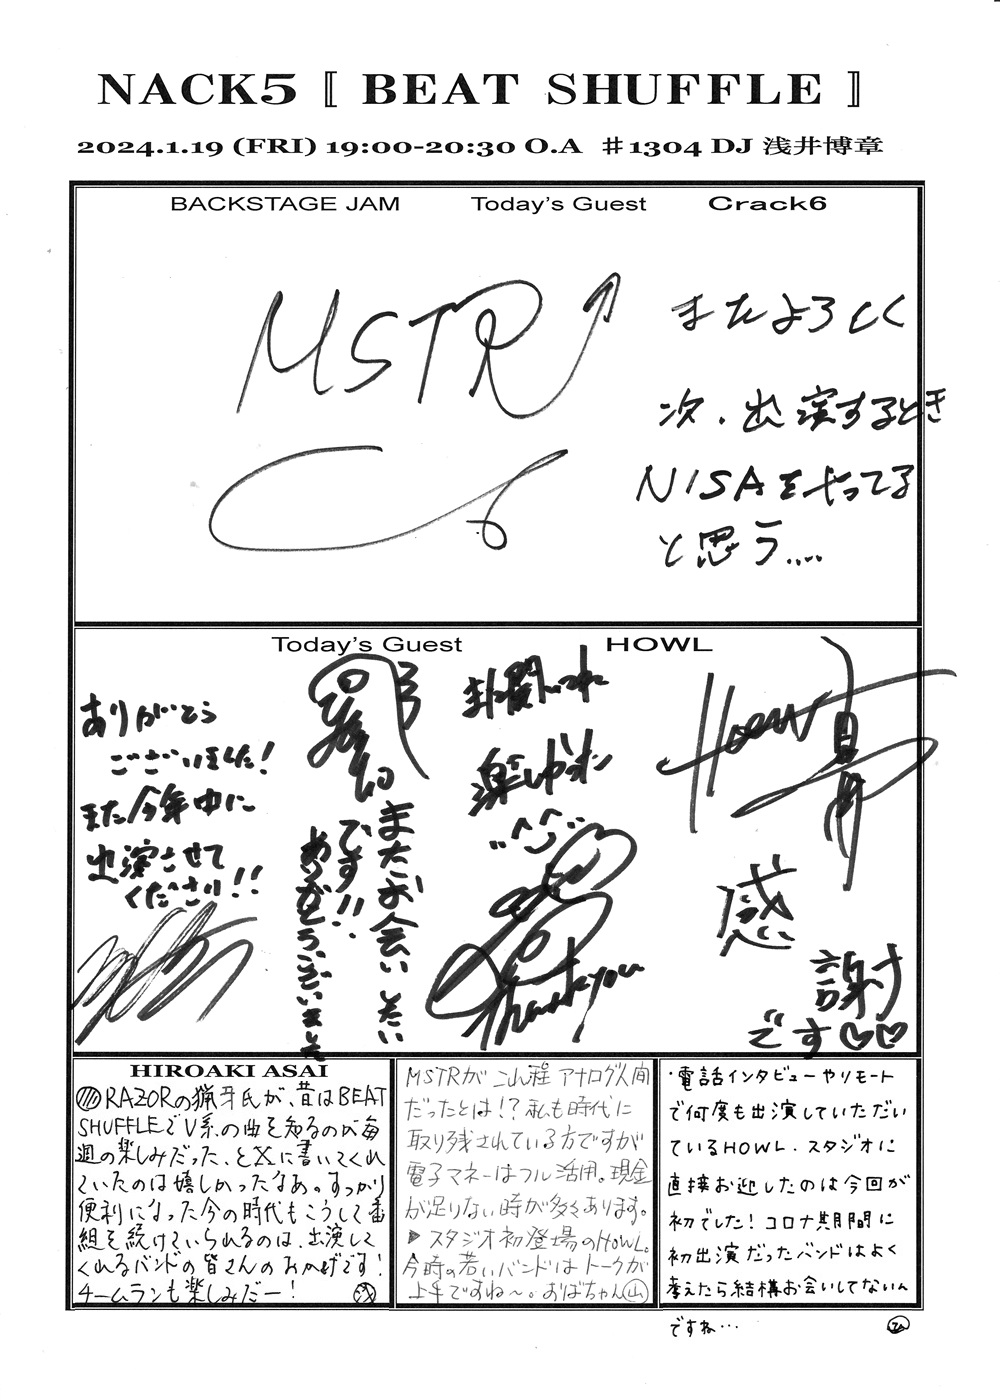 NACK5 〚 BEAT SHUFFLE 〛
2024.1.19 (FRI) 19:00-20:30 O.A ♯1304 DJ 浅井博章
BACKSTAGE JAM Today's Guest Crack6
MSTR
またよろしく
次、出演するとき
NISAをやってる
と思う....
Today's Guest HOWL
ありがとう
ございました!
また今年中に
出演させて
ください!!
またお会いしたい
です!!
ありがとうございました
また聞いてね
楽しかった
Thank you
HOWL 真宵
感
謝
です♡♡
HIROAKI ASAI
RAZORの猟牙氏が、昔はBEAT
SHUFFLEでV系の曲を知るのが毎
週の楽しみだった、とXに書いてくれ
ていたのは嬉しかったなあ。すっかり
便利になった今の時代もこうして番
組を続けていられるのは、出演して
くれるバンドの皆さんのおかげです!
チームランも楽しみだー! 浅
MSTRがこれ程アナログ人間
だったとは!?私も時代に
取り残されている方ですが
電子マネーはフル活用。現金
が足りない時が多々あります。
▶スタジオ初登場のHOWL。
今時の若いバンドはトークが
上手ですね〜。おばちゃん山
・電話インタビューやリモート
で何度も出演していただい
ているHOWL．スタジオに
直接お迎したのは今回が
初でした!コロナ期間に
初出演だったバンドはよく
考えたら結構お会いしてないん
ですね…